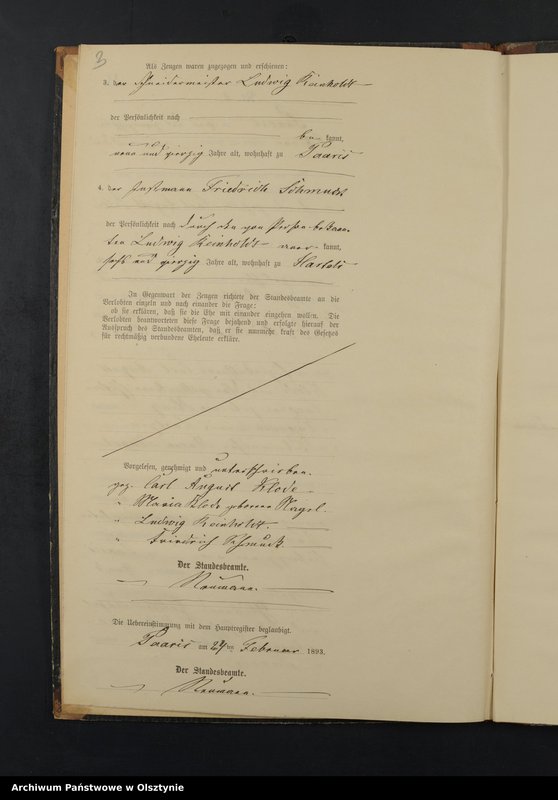 3
Als Zeugen waren zugezogen und erschienen:
3. der Schneidermeister Ludwig Reinholdt
der Persönlichkeit nach
be kannt,
neun und vierzig Jahre alt, wohnhaft zu Paaris
4. der Instmann Friedrich Schmuck
der Persönlichkeit nach durch den von Person bekann-
ten Ludwig Reinholdt aner kannt,
sechs und vierzig Jahre alt, wohnhaft zu
In Gegenwart der Zeugen richtete der Standesbeamte an die
Verlobten einzeln und nach einander die Frage:
ob sie erklären, daß sie die Ehe mit einander eingehen wollen. Die
Verlobten beantworteten diese Frage bejahend und erfolgte hierauf der
Ausspruch des Standesbeamten, daß er sie nunmehr kraft des Gesetzes
für rechtmäßig verbundene Eheleute erkläre.
Vorgelesen, genehmigt und unterschrieben.
gez. Carl August Klode
" Maria Klode geborene Nagel.
" Ludwig Reinholdt.
" Friedrich Schmuck.
Der Standesbeamte.
Neumann.
Die Uebereinstimmung mit dem Hauptregister beglaubigt.
Paaris am 24ten Februar 1893.
Der Standesbeamte.
Neumann.
Archiwum Państwowe w Olsztynie